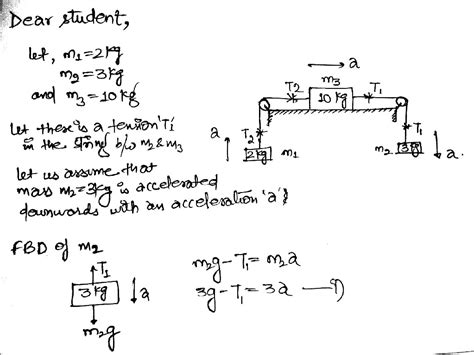 Dear student,
let, m₁=2kg
m₂=3kg
and m₃=10kg
let there is a tension T₁
in the string b/w m₂ & m₃
let us assume that
mass m₂=3kg is accelerated
downwards with an acceleration 'a'
→ a
T₂ m₃ T₁
10 kg
a T₂ T₁
2kg m₁ m₂ 3kg a
FBD of m₂
T₁
3kg a
m₂g
m₂g-T₁=m₂a
3g-T₁=3a —①